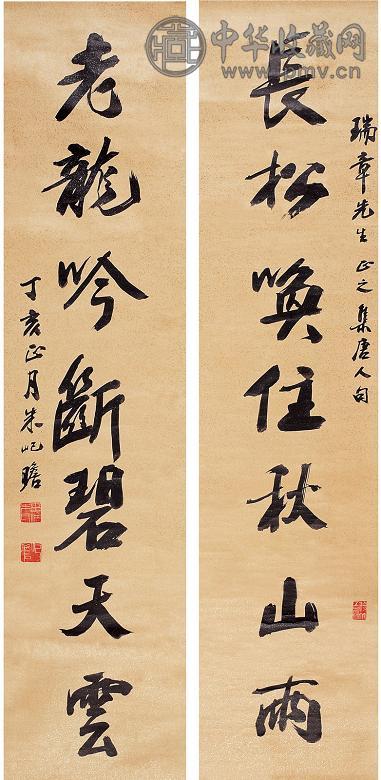 中华收藏网
www.pmv.cn
瑞章先生正之集唐人句
長松喚住秋山雨
老龍吟斷碧天雲
丁亥正月朱屺瞻